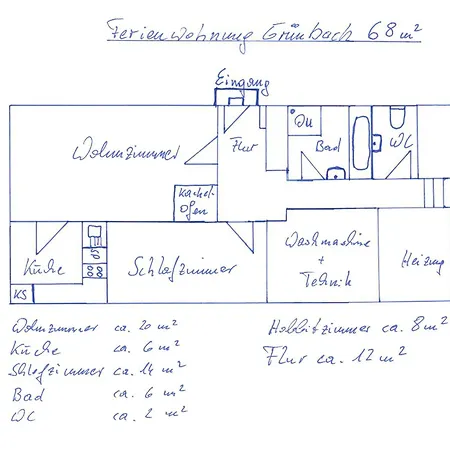 Ferienwohnung Grünbach 68 m²
Eingang
Wohnzimmer
Flur
Du
Bad
WC
Kachel-
Ofen
Küche
SP
Schlafzimmer
Waschmaschine
+
Technik
Heizung
KS
Wohnzimmer ca. 20 m²
Küche ca. 6 m²
Schlafzimmer ca. 14 m²
Bad ca. 6 m²
WC ca. 2 m²
Hobbitzimmer ca. 8 m²
Flur ca. 12 m²